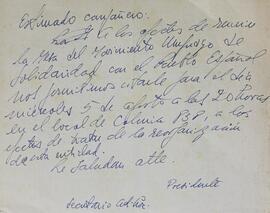 Estimado compañero:
a los efectos de reunir
la Mesa del Movimiento Uruguayo de
Solidaridad con el Pueblo Español
nos permitimos citarle para el día
miércoles 5 de agosto a las 20 horas
en el local de Colonia a los
efectos de tratar de la reorganización
de esta entidad.
Le saludan atte.
Presidente
Secretario